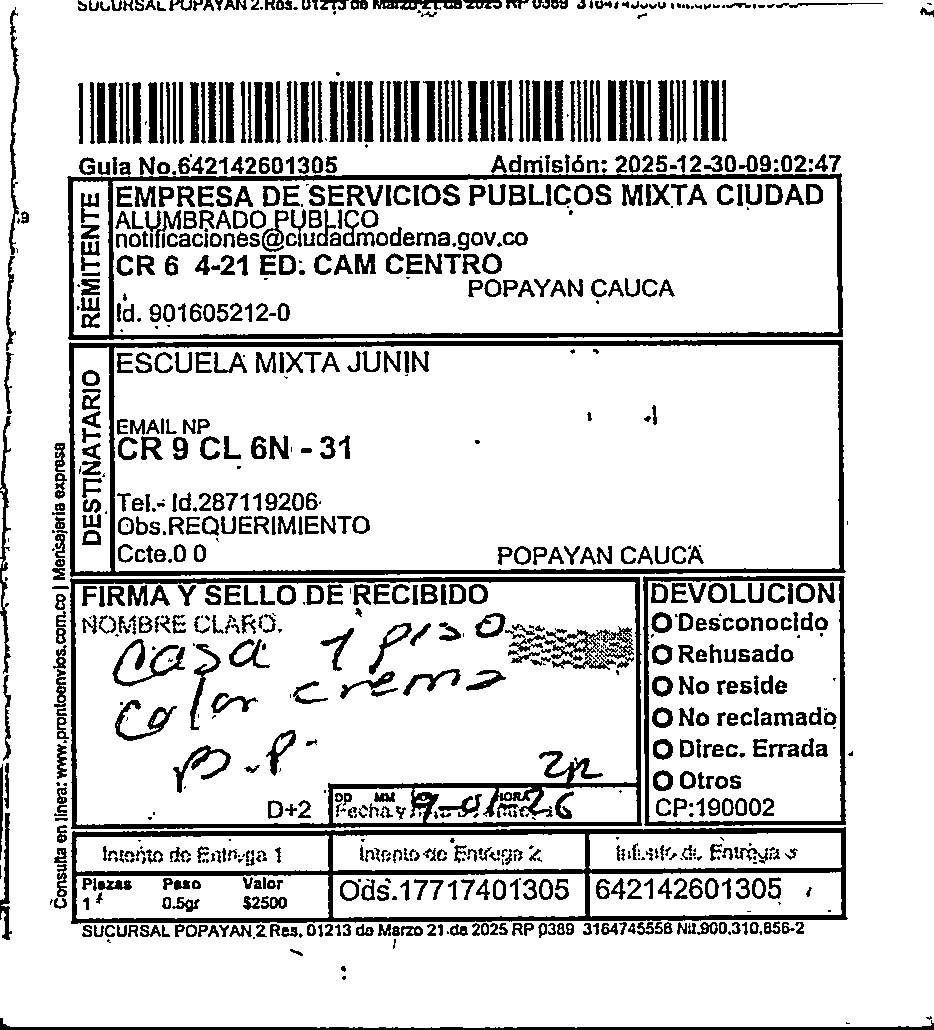 SUCURSAL POPAYAN 2.Res. 01213 de Marzo 21 de 2025 RP 0389 3164745556
Guia No.642142601305 Admisión: 2025-12-30-09:02:47
REMITENTE
EMPRESA DE SERVICIOS PUBLICOS MIXTA CIUDAD
ALUMBRADO PUBLICO
notificaciones@ciudadmoderna.gov.co
CR 6 4-21 ED. CAM CENTRO
POPAYAN CAUCA
Id. 901605212-0
DESTINATARIO
ESCUELA MIXTA JUNIN
EMAIL NP
CR 9 CL 6N - 31
Tel.- Id.287119206
Obs.REQUERIMIENTO
Ccte.0 0 POPAYAN CAUCA
Consulta en linea: www.prontoenvios.com.co | Mensajeria expresa
FIRMA Y SELLO DE RECIBIDO
NOMBRE CLARO.
Casa 1 piso
Color crema
P.P.
D+2
DD MM HORA
Fecha y
9-01-26
DEVOLUCION
Desconocido
Rehusado
No reside
No reclamado
Direc. Errada
Otros
CP:190002
Intento de Entrega 1 Intento de Entrega 2 Intento de Entrega 3
Piezas Peso Valor
1 0.5gr $2500
Ods.17717401305 642142601305
SUCURSAL POPAYAN 2 Res. 01213 de Marzo 21 de 2025 RP 0389 3164745556 Nit.900.310.856-2